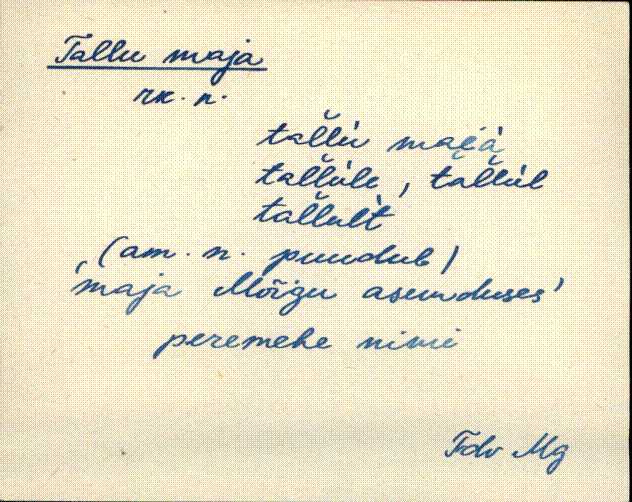 Tallu maja
rk. n.
tal̆l̆ù mai̯à
tal̆l̆ùle, tal̆l̆ùl
tal̆l̆ult̀
(am. n. puudub)
'maja Mõigu asunduses'
peremehe nimi
Mg